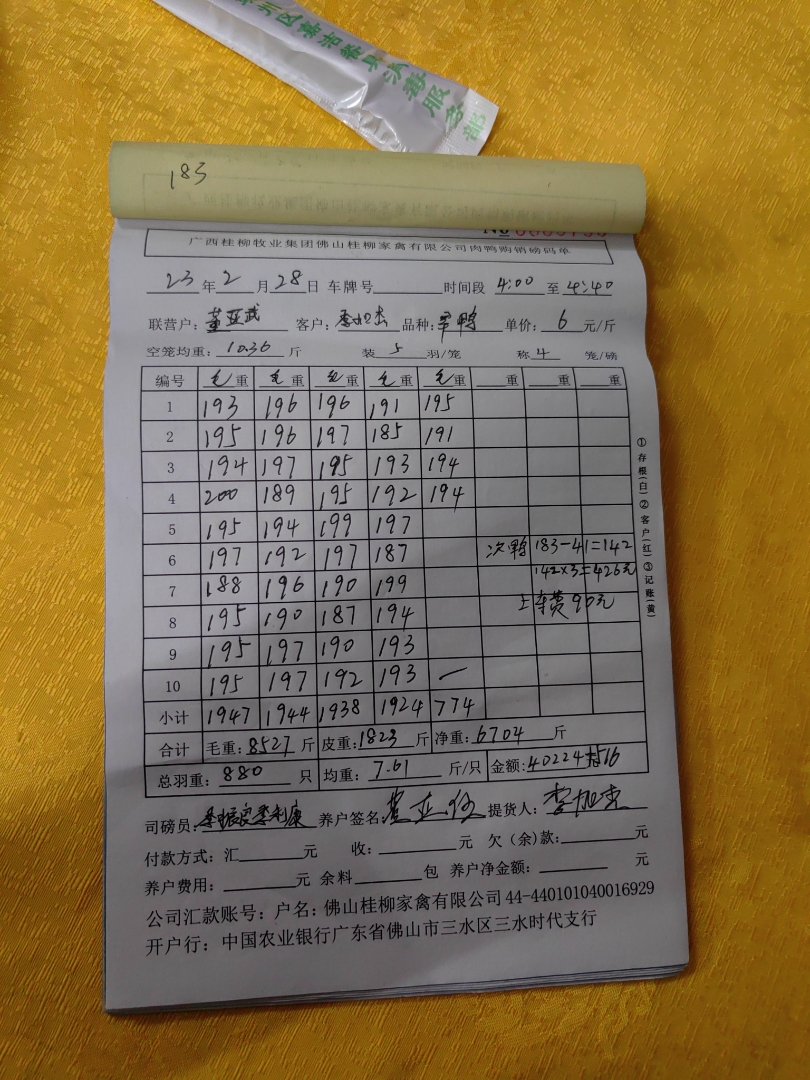 服务部
183
No
广西桂柳牧业集团佛山桂柳家禽有限公司肉鸭购销磅码单
23年2月28日 车牌号 时间段 4:00 至 4:40
联营户: 客户: 品种: 单价: 6 元/斤
空笼均重: 10.36 斤 装 5 羽/笼 称 4 笼/磅
编号 毛重 毛重 毛重 毛重 毛重 重 重 重
1 193 196 196 191 195
2 195 196 197 185 191
3 194 197 195 193 194
4 200 189 195 192 194
5 195 194 199 197
6 197 192 197 187 次鸭 183-41=142
7 188 196 190 199 142×3=426元
8 195 190 187 194 上车费90元
9 195 197 190 193
10 195 197 192 193 —
小计 1947 1944 1938 1924 774
合计 毛重: 8527 斤 皮重: 1823 斤 净重: 6704 斤
总羽重: 880 只 均重: 7.61 斤/只 金额: 40224+516
司磅员: 养户签名: 提货人:
付款方式: 汇 元 收: 元 欠(余)款: 元
养户费用: 元 余料 包 养户净金额: 元
公司汇款账号: 户名: 佛山桂柳家禽有限公司 44-440101040016929
开户行: 中国农业银行广东省佛山市三水区三水时代支行
①存根(白)②客户(红)③记账(黄)